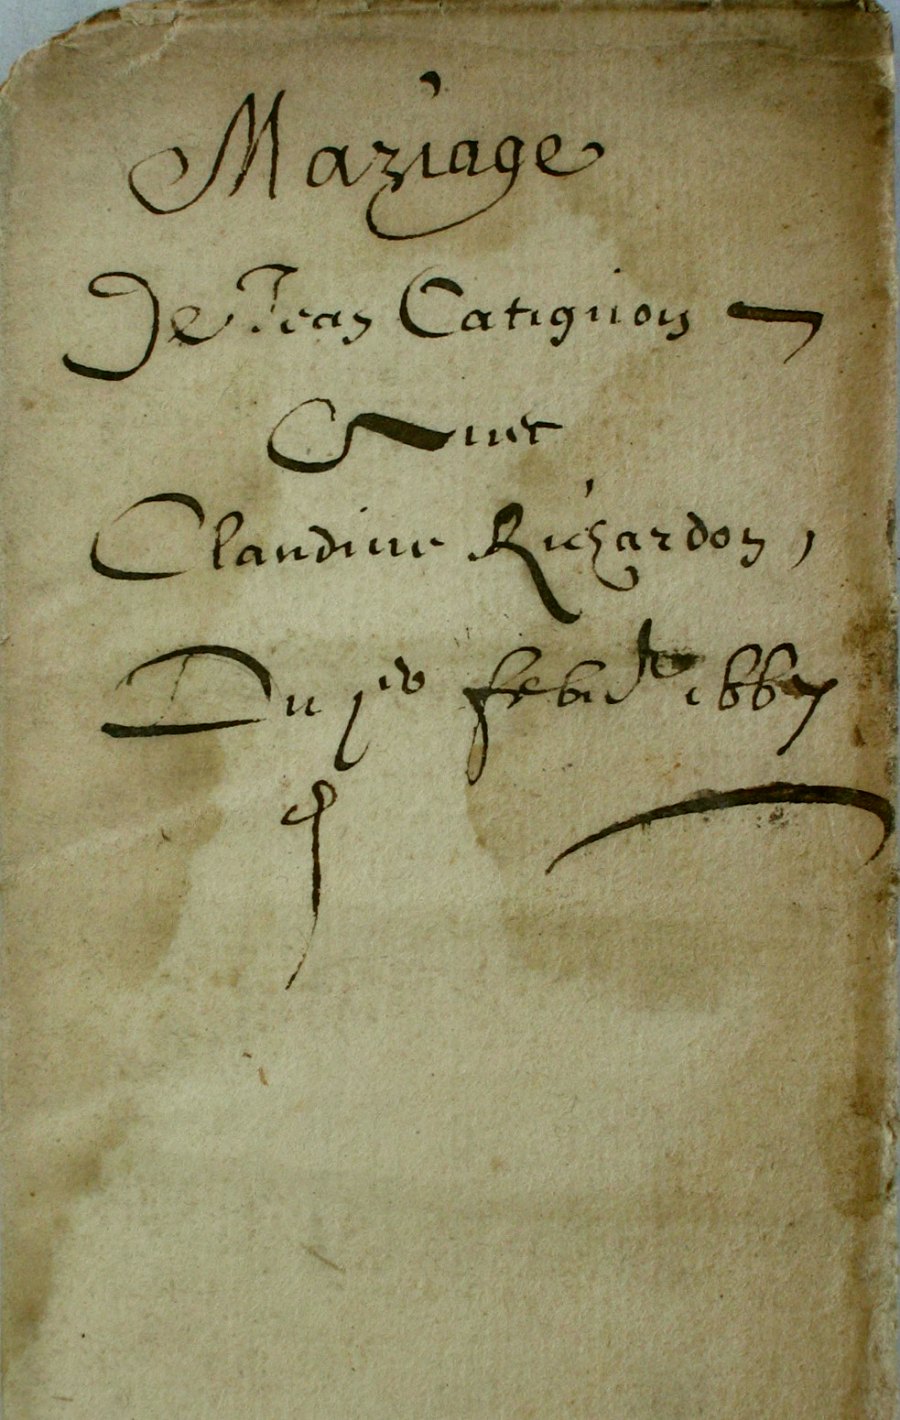 Mariage
De Jean Catignon
Auec
Claudine Richardon,
Du 1er feb 1667